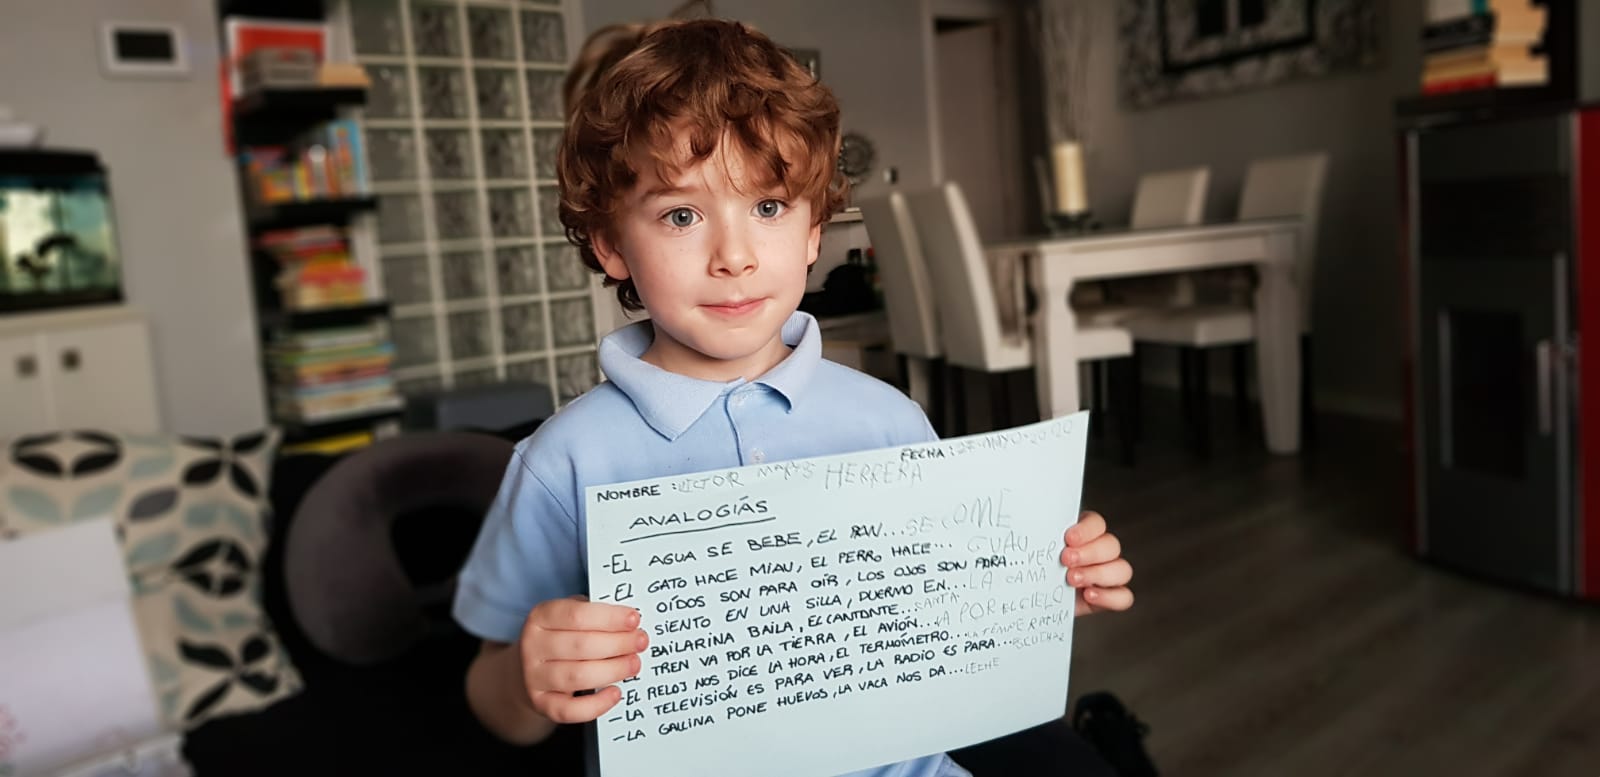 NOMBRE : VICTOR HERRERA FECHA : 27-MAYO-2020
ANALOGÍAS
-EL AGUA SE BEBE, EL PAN... SE COME
-EL GATO HACE MIAU, EL PERRO HACE... GUAU
OÍDOS SON PARA OÍR, LOS OJOS SON PARA... VER
SIENTO EN UNA SILLA, DUERMO EN... LA CAMA
BAILARINA BAILA, EL CANTANTE... CANTA
TREN VA POR LA TIERRA, EL AVIÓN... VA POR EL CIELO
-EL RELOJ NOS DICE LA HORA, EL TERMÓMETRO... LA TEMPERATURA
-LA TELEVISIÓN ES PARA VER, LA RADIO ES PARA... ESCUCHAR
-LA GALLINA PONE HUEVOS, LA VACA NOS DA... LECHE